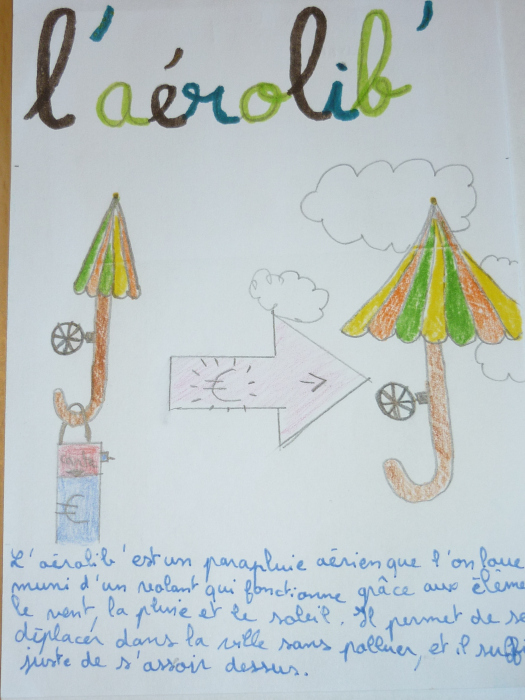 l'aérolib'
€
€
L'aérolib' est un parapluie aérien que l'on loue
muni d'un volant qui fonctionne grâce aux éléme
le vent, la pluie et le soleil. Il permet de se
déplacer dans la ville sans polluer, et il suffi
juste de s'assoir dessus.